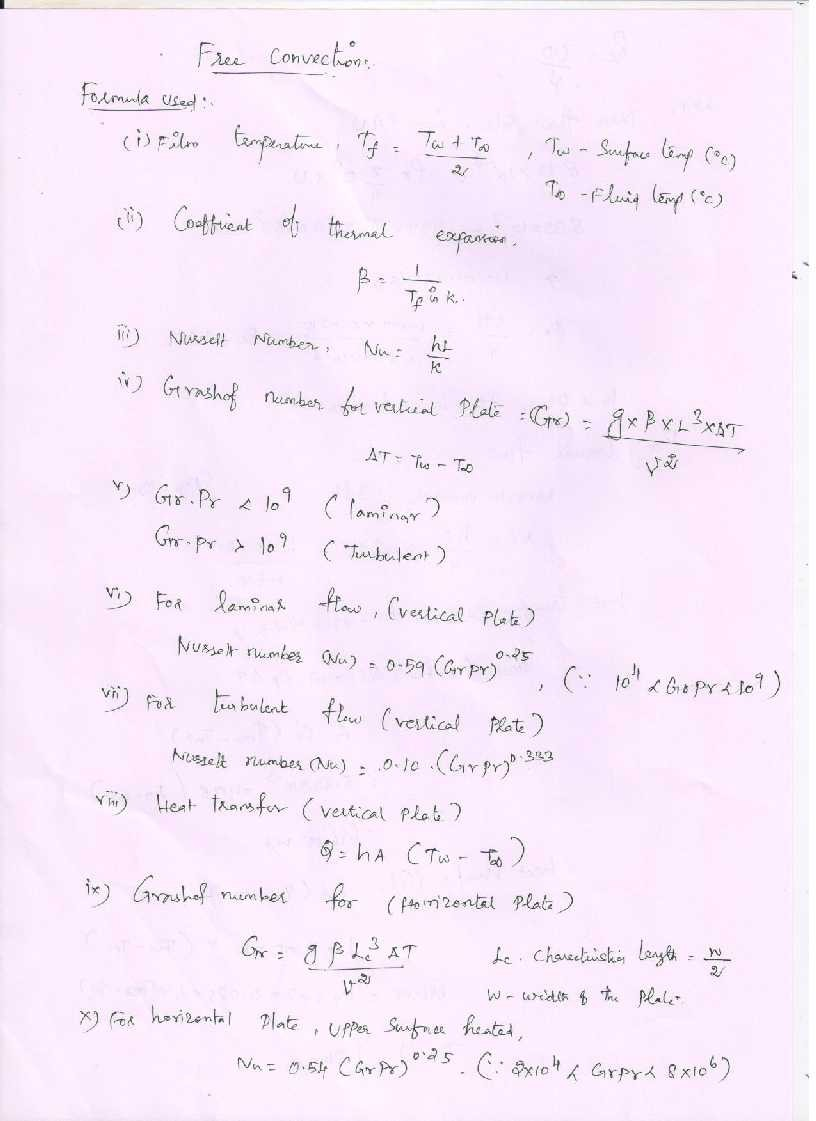 Free Convection:
Formula used:
(i) Film temperature, Tf = (Tw + T∞)/2, Tw - Surface temp (°c)
T∞ - Fluid temp (°c)
(ii) Coefficient of thermal expansion.
β = 1/(Tf in K.)
iii) Nusselt Number, Nu = hL/K
iv) Grashof number for vertical Plate = (Gr) = (g x β x L³ x ΔT)/ν²
ΔT = Tw - T∞
v) Gr.Pr < 10⁹ (laminar)
Gr.Pr > 10⁹ (Turbulent)
vi) For laminar flow, (vertical Plate)
Nusselt number (Nu) = 0.59 (Gr Pr)^0.25, (∵ 10⁴ < Gr Pr < 10⁹)
vii) For turbulent flow (vertical Plate)
Nusselt number (Nu) = 0.10 (Gr Pr)^0.333
viii) Heat transfer (vertical Plate)
Q = hA (Tw - T∞)
ix) Grashof number for (horizontal Plate)
Gr = (g β Lc³ ΔT)/ν² Lc. Characteristics length = W/2
W - width of the Plate.
x) For horizontal Plate, upper Surface heated,
Nu = 0.54 (Gr Pr)^0.25. (∵ 2x10⁴ < Gr Pr < 8x10⁶)